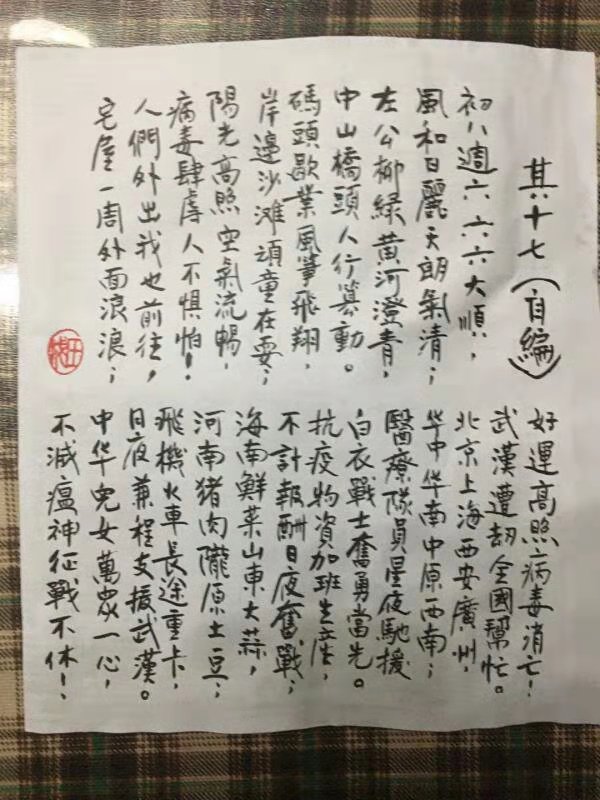 其十七（自編）
初八週六六六大順，
風和日麗天朗氣清；
左公柳緑黄河澄青，
中山橋頭人行篡動。
碼頭歇業風筝飛翔，
岸邊沙滩頑童在耍；
陽光高照空氣流暢，
病毒肆虐人不惧怕！
人們外出我也前往，
宅屋一周外面浪浪；
好運高照病毒消亡！
武漢遭劫全國幫忙。
北京上海西安廣州，
华中华南中原西南；
醫療隊員星夜馳援
白衣戰士奮勇當先。
抗疫物資加班生产，
不計報酬日夜奮戰；
海南鮮菜山東大蒜，
河南猪肉隴原土豆；
飛機火車長途重卡，
日夜兼程支援武漢。
中华兒女萬眾一心，
不滅瘟神征戰不休！